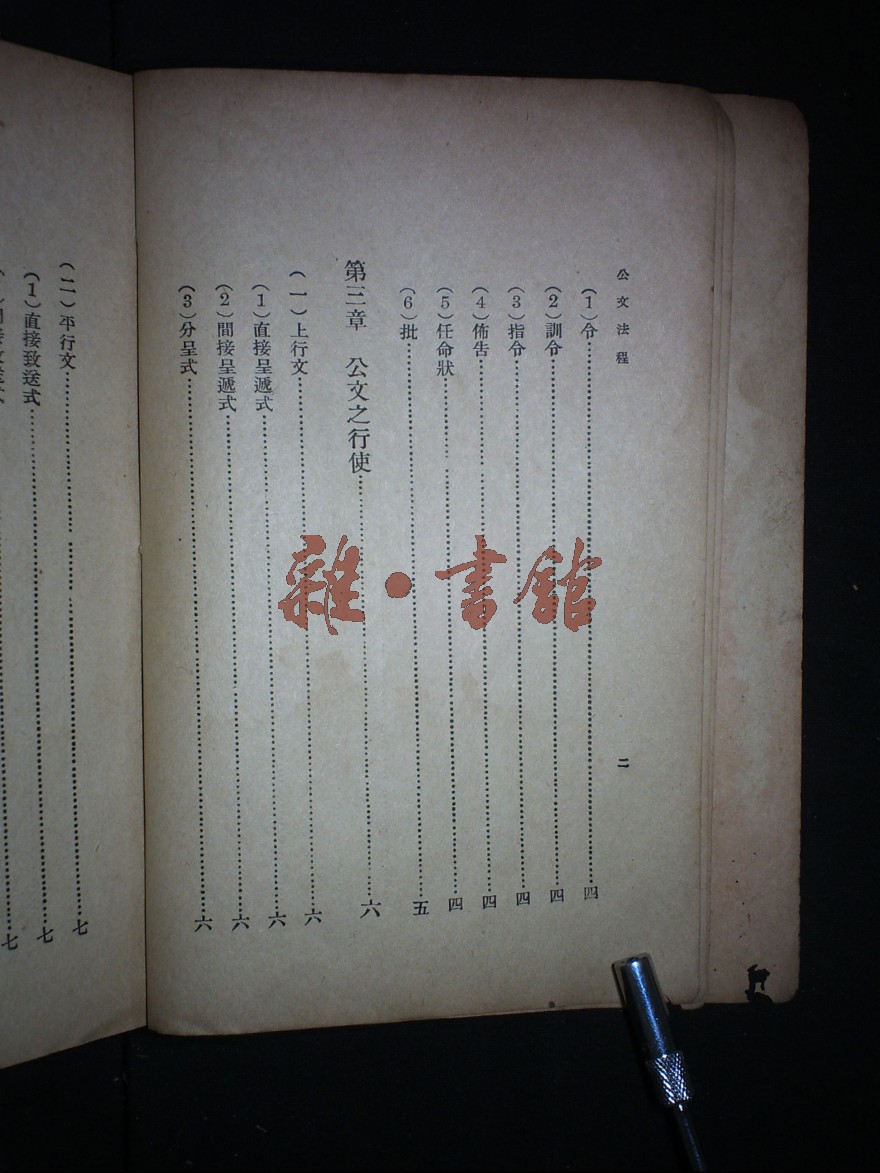 公文法程
二
（1）令……四
（2）訓令……四
（3）指令……四
（4）佈告……四
（5）任命狀……四
（6）批……五
第三章　公文之行使……六
（一）上行文……六
（1）直接呈遞式……六
（2）間接呈遞式……六
（3）分呈式……六
（二）平行文……七
（1）直接致送式……七
七
雜·書館